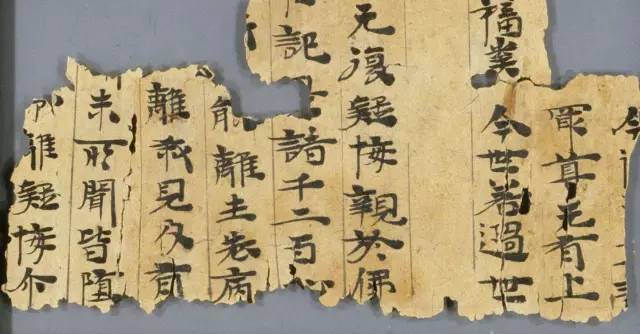 最尊无有上
福業 今世若過世
无復疑悔親於佛
記是諸千二百心
能離生老病
離我見及有
未所聞皆墮
離疑悔尒